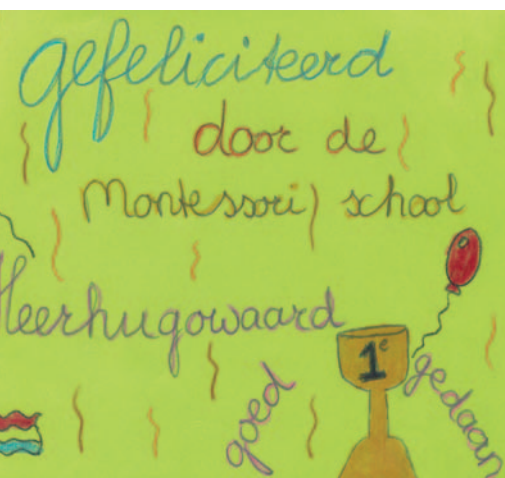 gefeliciteerd
door de
Montessori school
Heerhugowaard
1e
goed gedaan